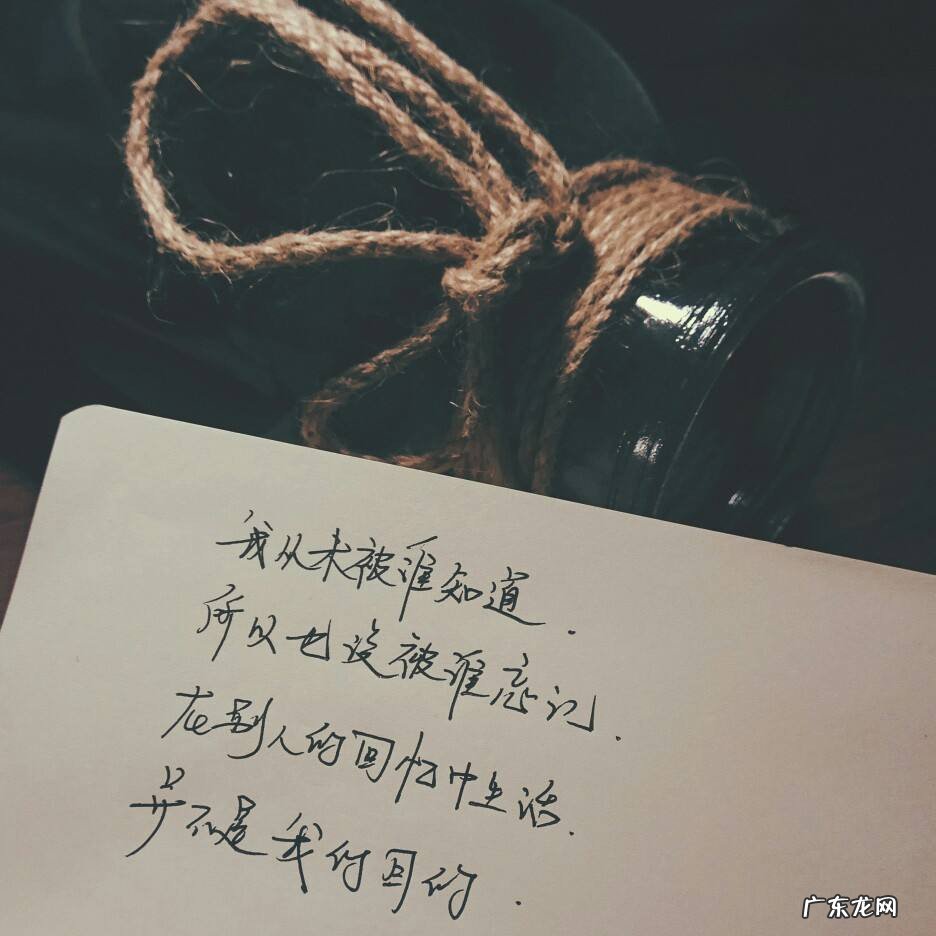 我从未被谁知道.
所以也没被谁忘记.
在别人的回忆中生活.
并不是我的目的.
广东龙网